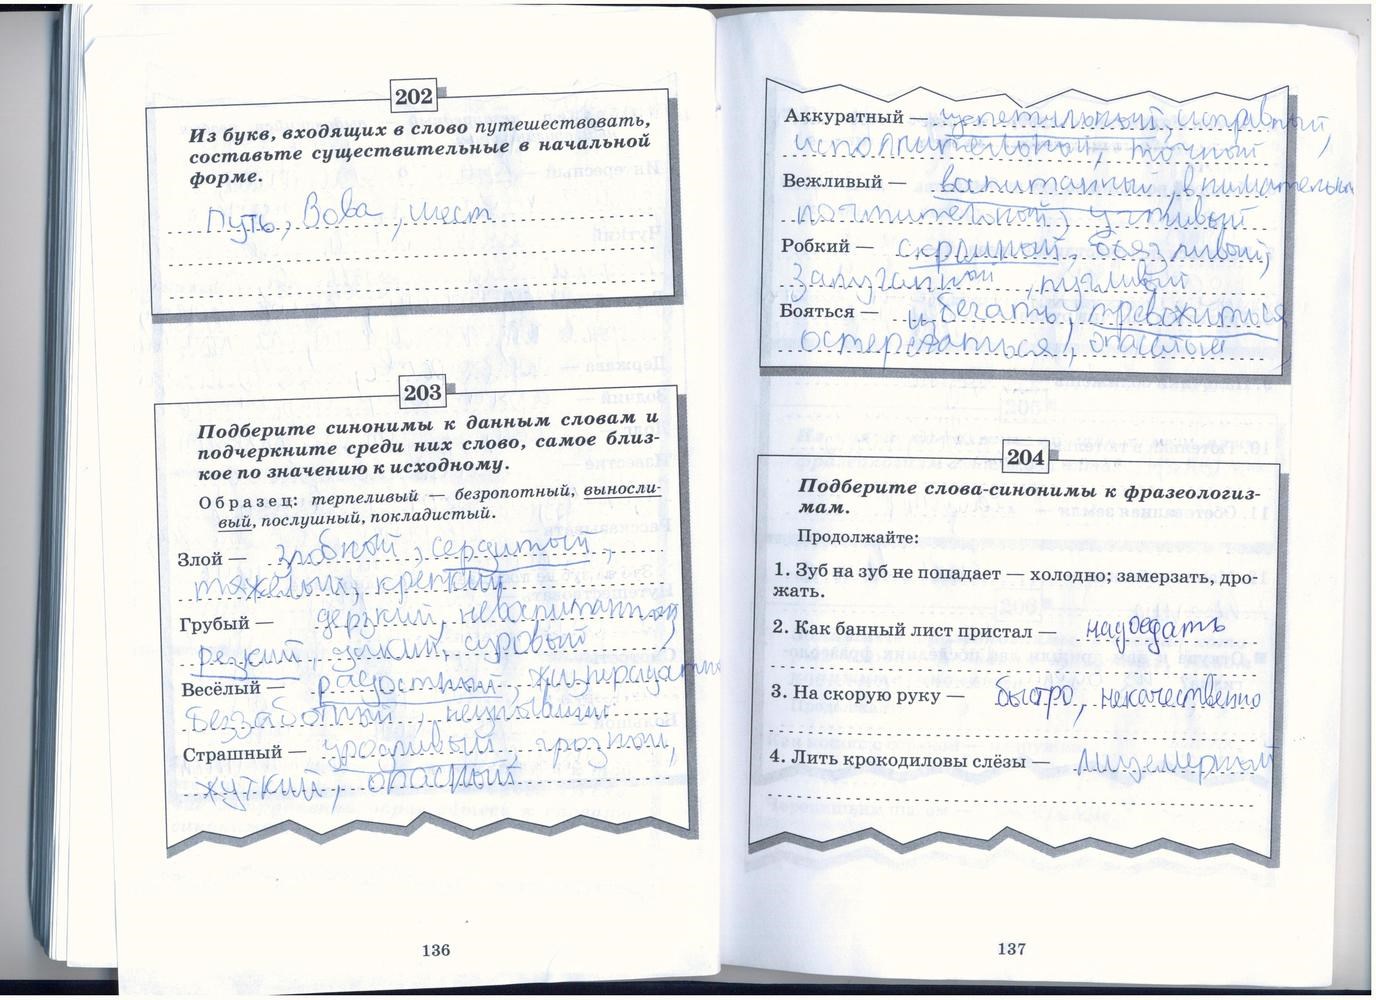 202
Из букв, входящих в слово путешествовать,
составьте существительные в начальной
форме.
Путь, Вова, шест
203
Подберите синонимы к данным словам и
подчеркните среди них слово, самое близ-
кое по значению к исходному.
Образец: терпеливый — безропотный, выносли-
вый, послушный, покладистый.
Злой — злобный, сердитый,
тяжёлый, крепкий
Грубый — дерзкий, невоспитанный,
резкий, суровый
Весёлый — радостный,
беззаботный,
Страшный — уродливый, грозный,
жуткий, опасный
136
Аккуратный — исправный,
исполнительный, точный
Вежливый — воспитанный,
почтительный, учтивый
Робкий — скромный, боязливый,
запуганный, пугливый
Бояться — избегать, тревожиться
остерегаться,
204
Подберите слова-синонимы к фразеологиз-
мам.
Продолжайте:
1. Зуб на зуб не попадает — холодно; замерзать, дро-
жать.
2. Как банный лист пристал — надоедать
3. На скорую руку — быстро, некачественно
4. Лить крокодиловы слёзы — лицемерный
137